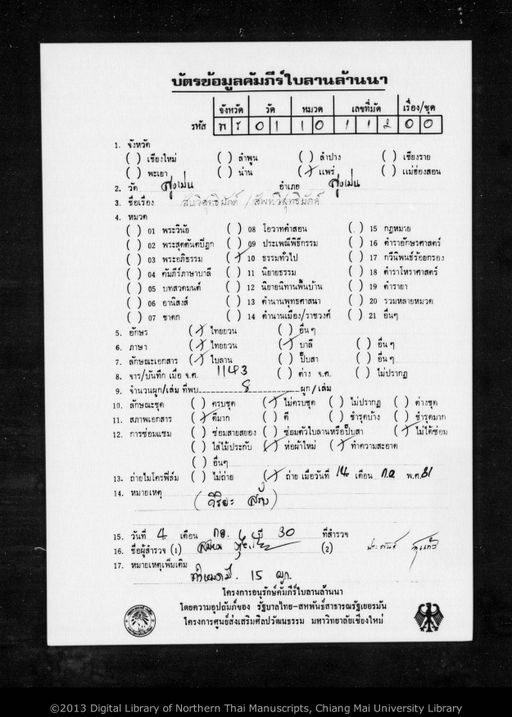 บัตรข้อมูลคัมภีร์ใบลานล้านนา
จังหวัด วัด หมวด เลขที่มัด เรื่อง/ชุด
รหัส พร 01 10 112 00
1. จังหวัด
( ) เชียงใหม่ ( ) ลำพูน ( ) ลำปาง ( ) เชียงราย
( ) พะเยา ( ) น่าน (✓) แพร่ ( ) แม่ฮ่องสอน
2. วัด สูงเม่น อำเภอ สูงเม่น
3. ชื่อเรื่อง
4. หมวด
( ) 01 พระวินัย ( ) 08 โอวาทคำสอน ( ) 15 กฎหมาย
( ) 02 พระสุตตันตปิฎก ( ) 09 ประเพณีพิธีกรรม ( ) 16 ตำราอักษรศาสตร์
( ) 03 พระอภิธรรม (✓) 10 ธรรมทั่วไป ( ) 17 กวีนิพนธ์ร้อยกรอง
( ) 04 คัมภีร์ภาษาบาลี ( ) 11 นิยายธรรม ( ) 18 ตำราโหราศาสตร์
( ) 05 บทสวดมนต์ ( ) 12 นิยายนิทานพื้นบ้าน ( ) 19 ตำรายา
( ) 06 อานิสงส์ ( ) 13 ตำนานพุทธศาสนา ( ) 20 รวมหลายหมวด
( ) 07 ชาดก ( ) 14 ตำนานเมือง/ราชวงศ์ ( ) 21 อื่นๆ
5. อักษร (✓) ไทยยวน ( ) อื่นๆ
6. ภาษา (✓) ไทยยวน (✓) บาลี ( ) อื่นๆ
7. ลักษณะเอกสาร (✓) ใบลาน ( ) ปั๊บสา ( ) อื่นๆ
8. จาร/บันทึก เมื่อ จ.ศ. 1193 ( ) ต่าง จ.ศ. ( ) ไม่ปรากฏ
9. จำนวนผูก/เล่ม ที่พบ 8 ผูก/เล่ม
10. ลักษณะชุด ( ) ครบชุด (✓) ไม่ครบชุด ( ) ไม่ปรากฏ ( ) ต่างชุด
11. สภาพเอกสาร (✓) ดีมาก ( ) ดี ( ) ชำรุดบ้าง ( ) ชำรุดมาก
12. การซ่อมแซม ( ) ซ่อมสายสยอง ( ) ซ่อมตัวใบลานหรือปั๊บสา (✓) ไม่ได้ซ่อม
( ) ใส่ไม้ประกับ (✓) ห่อผ้าใหม่ (✓) ทำความสะอาด
( ) อื่นๆ
13. ถ่ายไมโครฟิล์ม ( ) ไม่ถ่าย (✓) ถ่าย เมื่อวันที่ 14 เดือน ก.ค. พ.ศ. 31
14. หมายเหตุ
15. วันที่ 4 เดือน ปี 30 ที่สำรวจ
16. ชื่อผู้สำรวจ (1) (2)
17. หมายเหตุเพิ่มเติม
15 ผูก.
โครงการอนุรักษ์คัมภีร์ใบลานล้านนา
โดยความอุปถัมภ์ของ รัฐบาลไทย-สหพันธ์สาธารณรัฐเยอรมัน
โครงการศูนย์ส่งเสริมศิลปวัฒนธรรม มหาวิทยาลัยเชียงใหม่
©2013 Digital Library of Northern Thai Manuscripts, Chiang Mai University Library